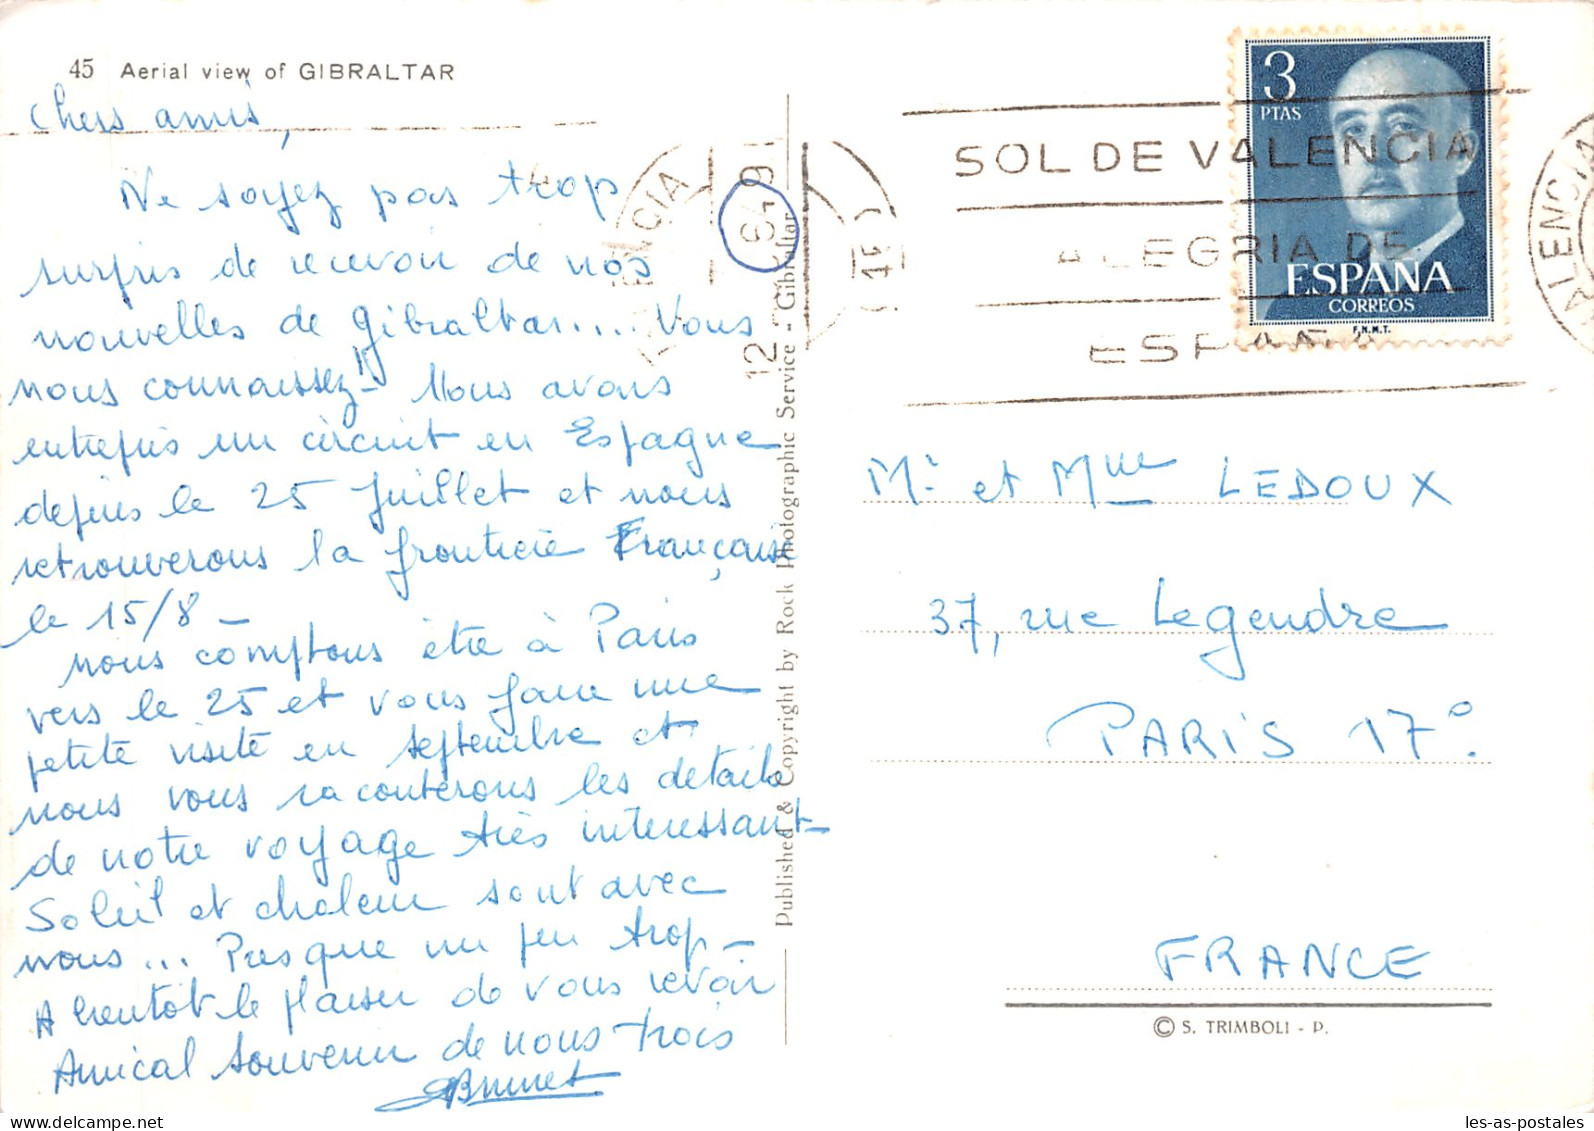 45 Aerial view of GIBRALTAR
Chers amis,
Ne soyez pas trop
surpris de recevoir de nos
nouvelles de Gibraltar.... Vous
nous connaissez !! - Nous avons
entrepris un circuit en Espagne
depuis le 25 Juillet et nous
retrouverons la frontière Française
le 15/8 -
Nous comptons être à Paris
vers le 25 et vous faire une
petite visite en septembre et
nous vous raconterons les details
de notre voyage très interessant
Soleil et chaleur sont avec
nous... Presque un peu trop -
A bientôt le plaisir de vous revoir
Amical souvenir de nous trois
Brunet
Published & Copyright by Rock Photographic Service - Gibraltar
SOL DE VALENCIA
ALEGRIA DE
ESPAÑA
VALENCIA
3
PTAS
ESPAÑA
CORREOS
F.N.M.T.
Mr et Mme LEDOUX
37, rue Legendre
PARIS 17°.
FRANCE
© S. TRIMBOLI - P.
delcampe.net
les-as-postales